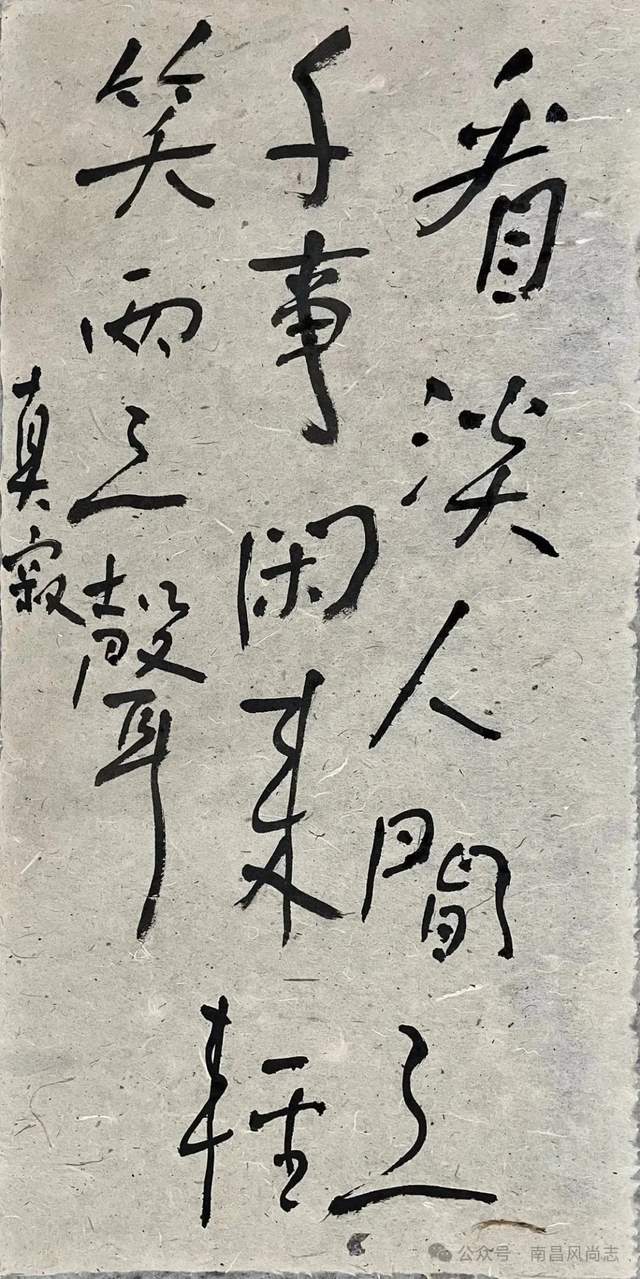 看淡人間三
千事闲来輕
笑两三聲
真寂
公众号·南昌风尚志